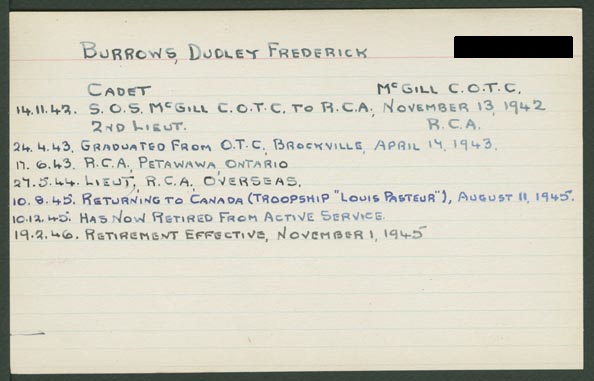 BURROWS, DUDLEY FREDERICK
CADET McGILL C.O.T.C.
14.11.42. S.O.S. McGILL C.O.T.C. TO R.C.A., NOVEMBER 13, 1942
2ND LIEUT. R.C.A.
24.4.43. GRADUATED FROM O.T.C. BROCKVILLE, APRIL 17, 1943.
17.6.43. R.C.A. PETAWAWA, ONTARIO
27.5.44. LIEUT., R.C.A. OVERSEAS.
10.8.45. RETURNING TO CANADA (TROOPSHIP "LOUIS PASTEUR"), AUGUST 11, 1945.
10.12.45. HAS NOW RETIRED FROM ACTIVE SERVICE.
19.2.46. RETIREMENT EFFECTIVE, NOVEMBER 1, 1945